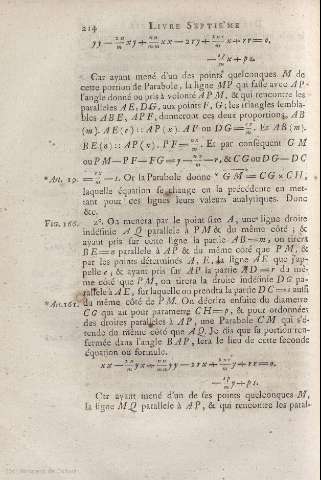 214 LIVRE SEPTIE'ME
yy — 2n/m xy + nn/m xx — 2ry + x + rr = 0,
— x + ps.
Car ayant mené d'un des points quelconques M de
cette portion de Parabole, la ligne MP qui fasse avec AP
l'angle donné ou pris à volonté APM, & qui rencontre les
paralleles AE, DG, aux points F, G; les triangles sembla-
bles ABE, APF, donneront ces deux proportions, AB
(m). AE (e) :: AP (x). AF ou DG = ex/m. Et AB (m).
BE (n) :: AP (x). PF = nx/m. Et par conséquent GM
ou PM — PF — FG = y — nx/m — r; & CG ou DG — DC
*Art. 19. = ex/m — s. Or la Parabole donne * GM² = CG × CH,
laquelle équation se change en la précédente en met-
tant pour ces lignes leurs valeurs analytiques. Donc
&c.
FIG. 166. 2°. On menera par le point fixe A, une ligne droite
indéfinie AQ parallele à PM & du même côté; &
ayant pris sur cette ligne la partie AB = m, on tirera
BE = n parallele à AP & du même côté que PM, &
par les points déterminés A, E, la ligne AE que j'ap-
pelle e; & ayant pris sur AP la partie AD = r du mê-
me côté que PM, on tirera la droite indéfinie DG pa-
rallele à AE, sur laquelle on prendra la partie DC = s aussi
*Art. 161. du même côté de PM. On décrira ensuite du diametre
CG qui ait pour parametre CH = p, & pour ordonnées
des droites paralleles à AP, une Parabole CM qui s'é-
tende du même côté que AQ. Je dis que sa portion ren-
fermée dans l'angle BAP, sera le lieu de cette seconde
équation ou formule.
xx — 2n/m yx + nn/mm yy — 2rx + 2nr/m y + rr = 0,
— ep/m y + ps.
Car ayant mené d'un de ses points quelconques M,
la ligne MQ parallele à AP, & qui rencontre les paral-